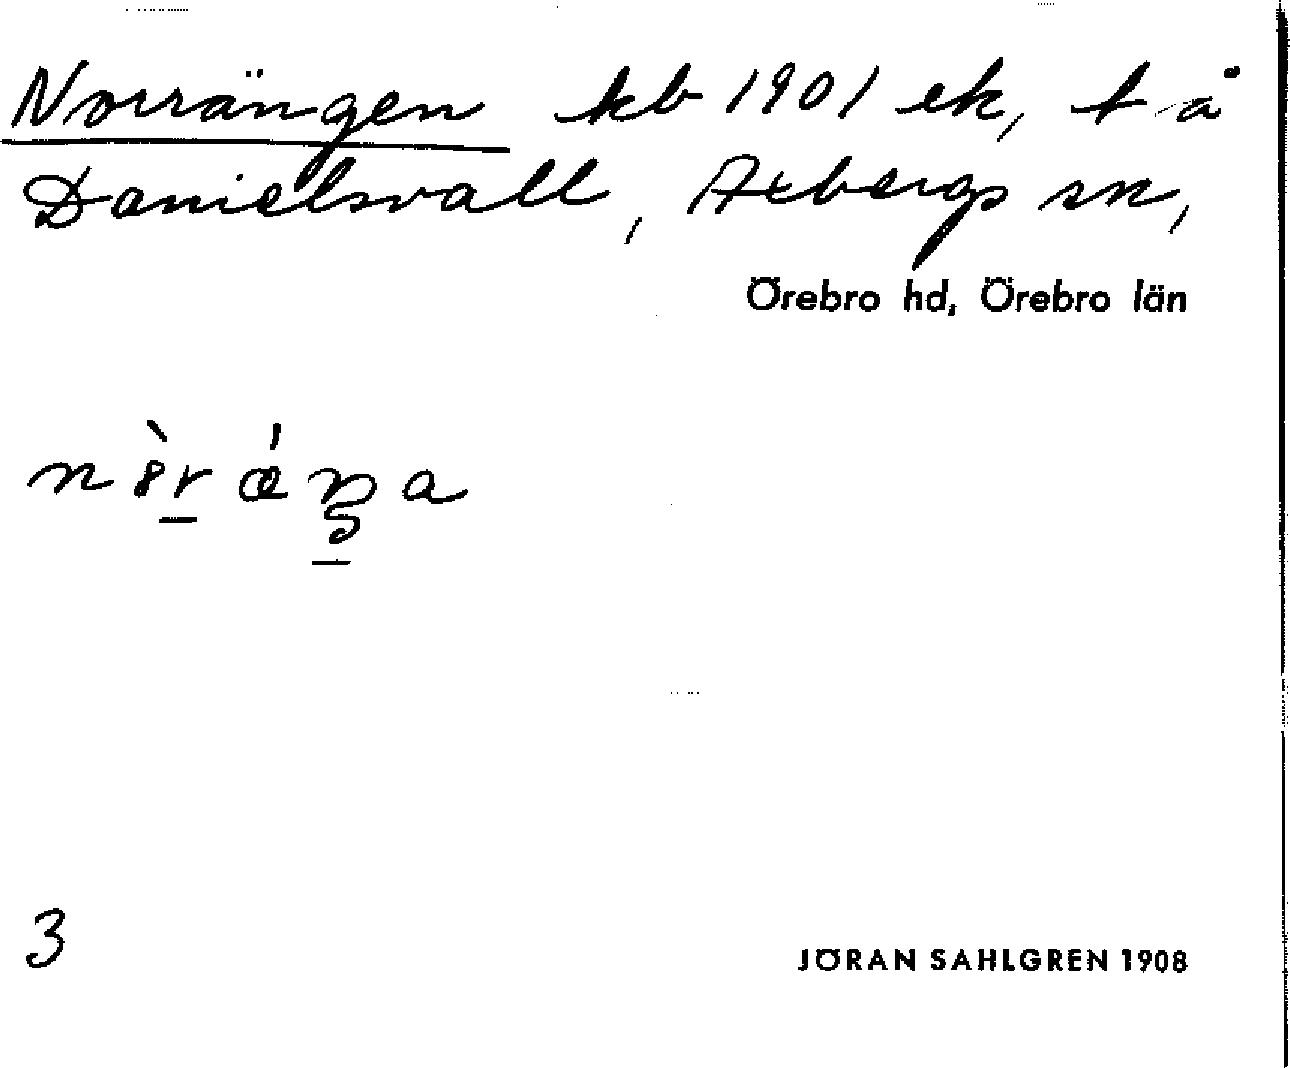 Norrängen kb 1901 ek, t å
Danielsvall, Axbergs sn,
Örebro hd, Örebro län
3
JÖRAN SAHLGREN 1908